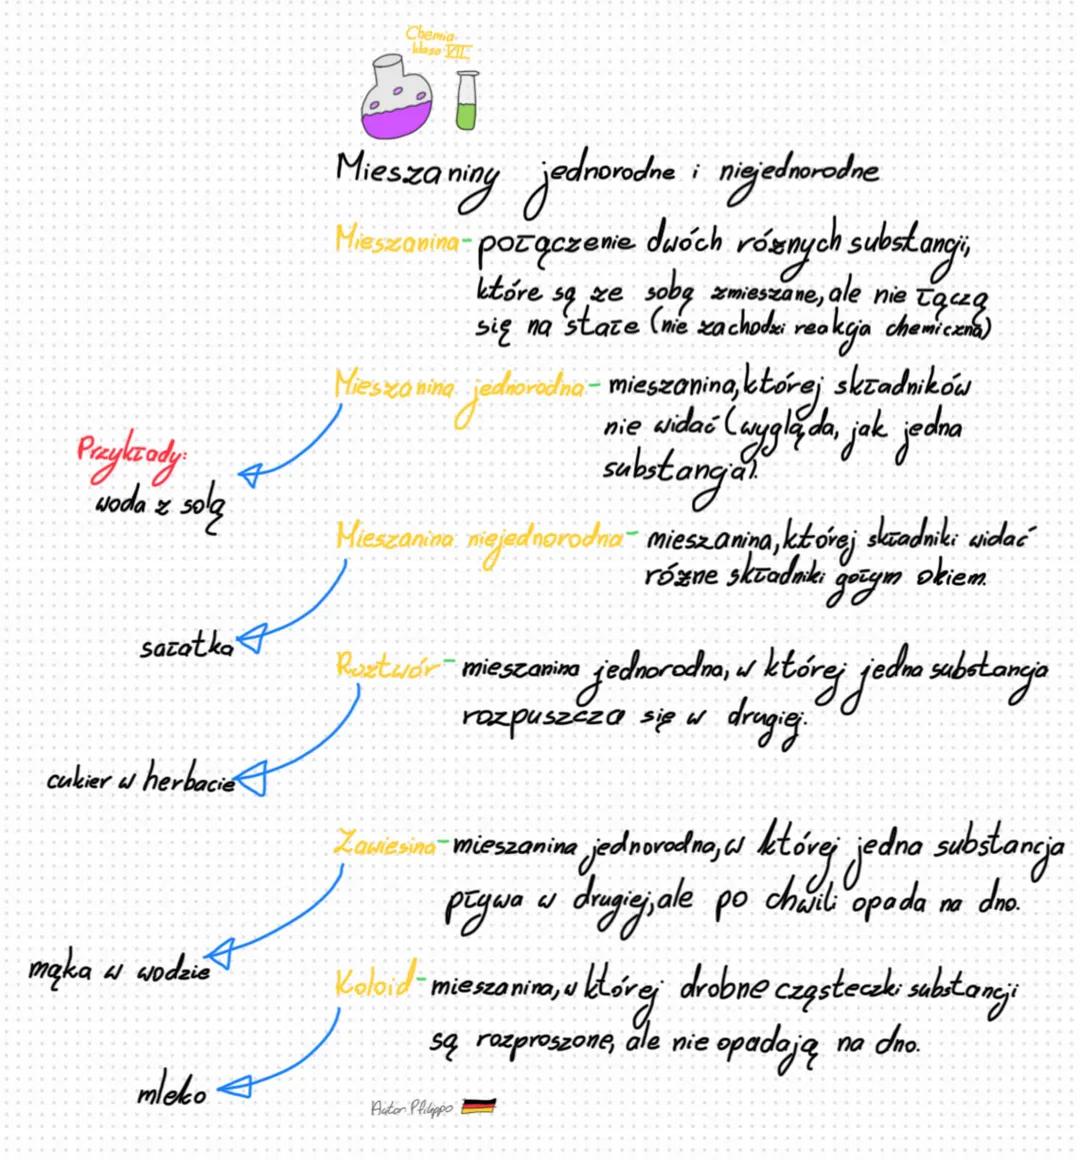 Chemia
klasa VII
Mieszaniny jednorodne i niejednorodne
Mieszanina - połączenie dwóch różnych substancji,
które są ze sobą zmieszane, ale nie łączą
się na stałe (nie zachodzi reakcja chemiczna)
Mieszanina jednorodna - mieszanina, której składników
nie widać (wygląda, jak jedna
substancja).
Przykłady:
woda z solą
Mieszanina niejednorodna - mieszanina, której składniki widać
różne składniki gołym okiem.
sałatka
Roztwór - mieszanina jednorodna, w której jedna substancja
rozpuszcza się w drugiej.
cukier w herbacie
Zawiesina - mieszanina jednorodna, w której jedna substancja
pływa w drugiej, ale po chwili opada na dno.
mąka w wodzie
Koloid - mieszanina, w której drobne cząsteczki substancji
są rozproszone, ale nie opadają na dno.
mleko
Autor: Philippo